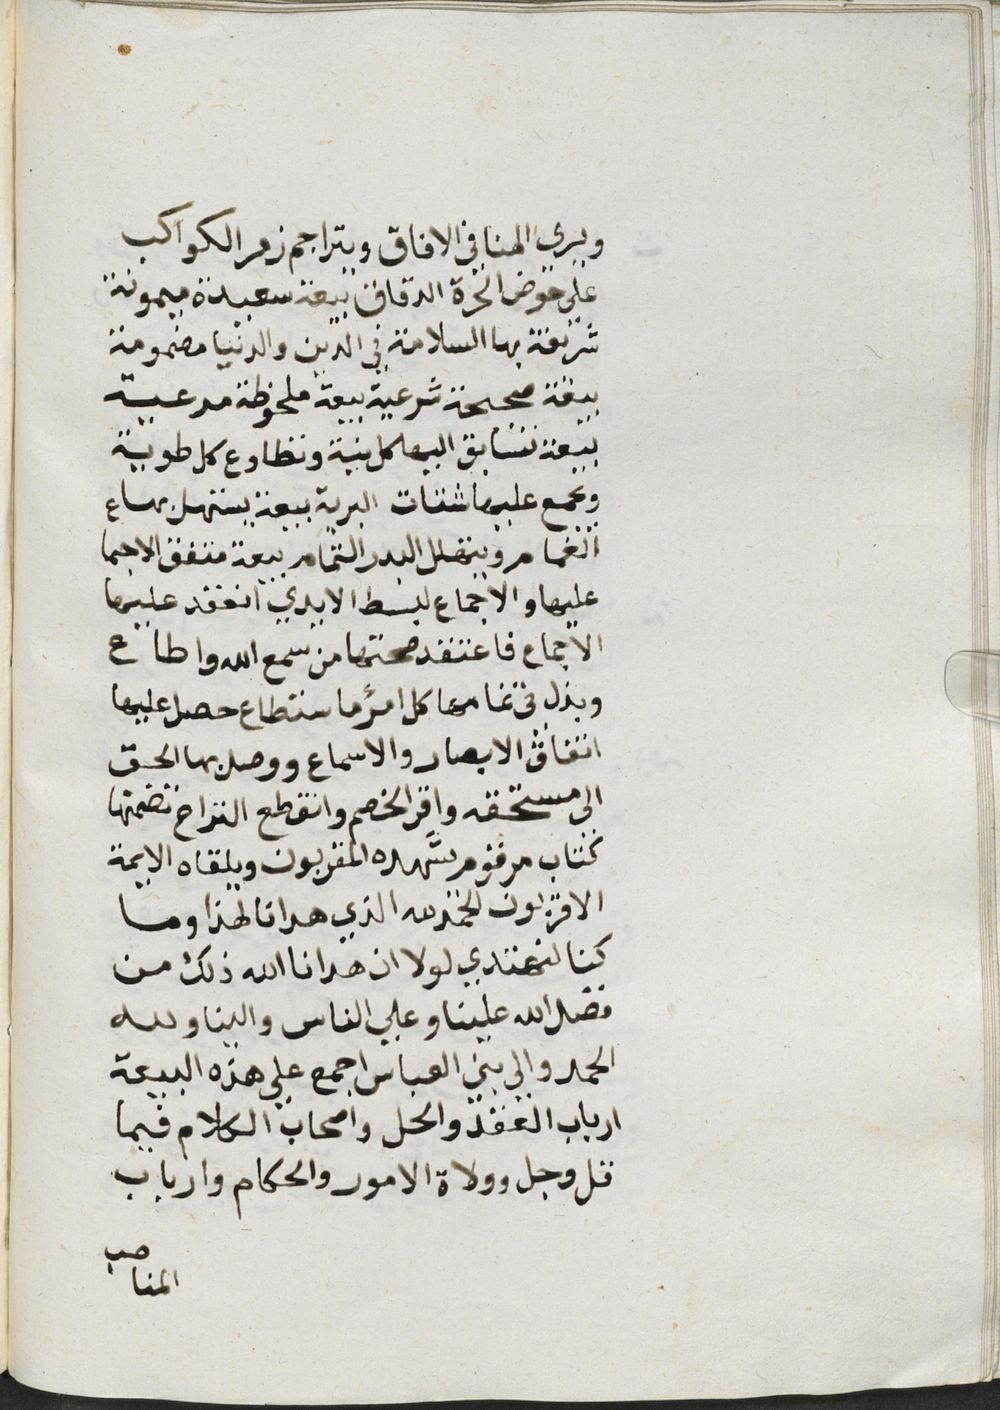 ويرى الهنا في الافاق ويتراجم زمر الكواكب
على حوض المجرة الدقاق بيعة سعيدة ميمونة
شريفة بها السلامة في الدين والدنيا مضمومنة
بيعة صحيحة شرعية بيعة ملحوظة مرعية
بيعة تتسابق اليها كل نية وتطاوع كل طوية
وتجمع عليها شتات البرية بيعة يستهل بها ع
الغمام ويتهلل البدر التمام بيعة متفق الاجما
عليها والاجماع لبسط الايدي انعقد عليها
الاجماع فاعتقد صحتها من سمع الله واطاع
وبذل في تمامها كل امرء ما ستطاع حصل عليها
اتفاق الابصار والاسماع ووصل بها الحق
الى مستحقه واقر الخصم وانقطع النزاع تضمنها
كتاب مرقوم يشهده المقربون ويلقاه الايمة
الاقربون الحمد لله الذي هدانا لهذا وما
كنا لنهتدي لولا ان هدانا الله ذلك من
فضل الله علينا وعلى الناس والينا ولله
الحمد والى بني العباس اجمع على هذه البيعة
ارباب العقد والحل واصحاب الكلام فيما
قل وجل وولاة الامور والحكام وارباب
المناصب